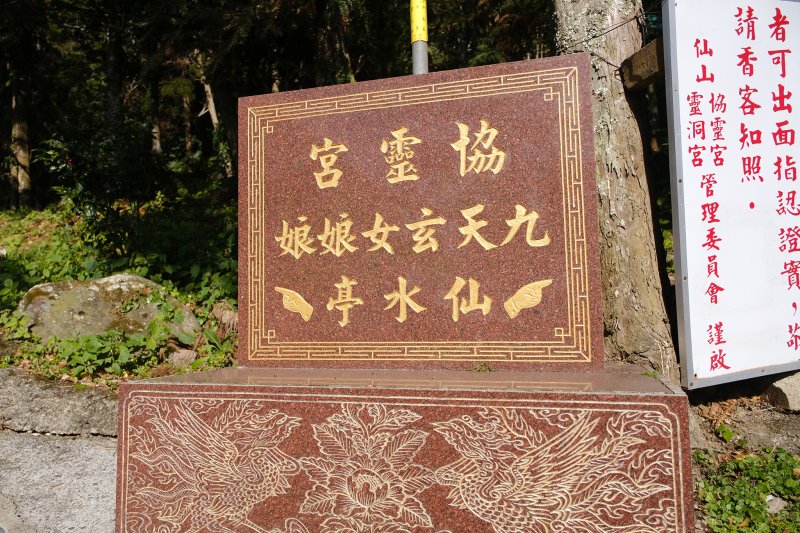 協靈宮
九天玄女娘娘
仙水亭
者可出面指認證實，敬
請香客知照．
仙山 協靈宮 靈洞宮 管理委員會 謹啟